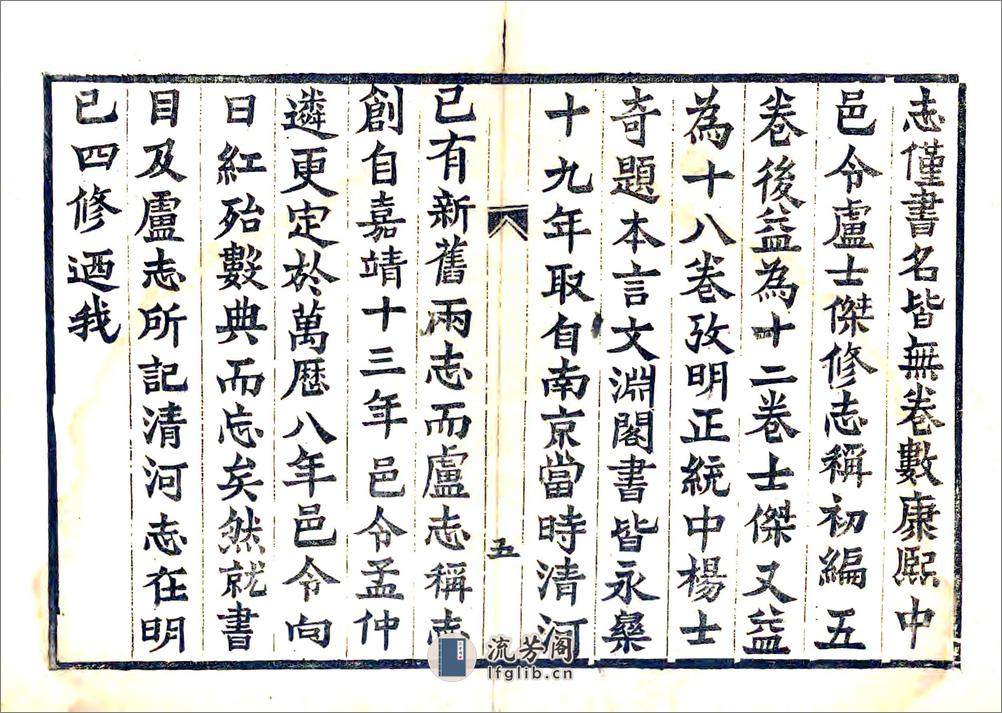 志僅書名皆無卷數康熙中
邑令盧士傑修志稱初編五
卷後益為十二卷士傑又益
為十八卷攷明正統中楊士
奇題本言文淵閣書皆永樂
十九年取自南京當時清河
五
已有新舊兩志而盧志稱志
創自嘉靖十三年邑令孟仲
遴更定於萬歷八年邑令向
日紅殆數典而忘矣然就書
目及盧志所記清河志在明
已四修迺我
流芳阁
lfglib.cn